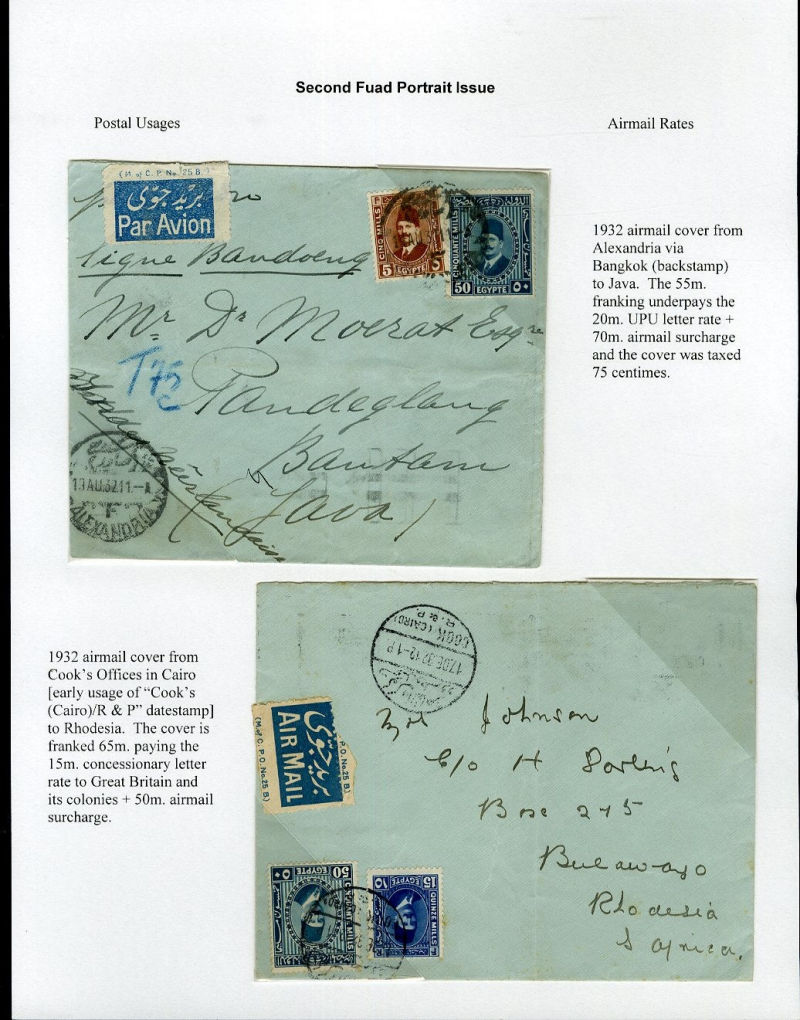 Second Fuad Portrait Issue
Postal Usages
Airmail Rates
(M. of C. P. No. 25 B.)
بريد جوّى
Par Avion
ligne Bandoeng
CINQ MILLS
5
EGYPTE
CINQUANTE MILLS
50
EGYPTE
٥٠
Mr Dr Moerat Esqre
T 75 c
Pandeglang
Bantam
(Java)
13 AU. 32. 11.- A
ALEXANDRIA
1932 airmail cover from
Alexandria via
Bangkok (backstamp)
to Java. The 55m.
franking underpays the
20m. UPU letter rate +
70m. airmail surcharge
and the cover was taxed
75 centimes.
1932 airmail cover from
Cook's Offices in Cairo
[early usage of "Cook's
(Cairo)/R & P" datestamp]
to Rhodesia. The cover is
franked 65m. paying the
15m. concessionary letter
rate to Great Britain and
its colonies + 50m. airmail
surcharge.
COOK (CAIRO)
R. & P.
17 DE 32 12-1 P
بريد جوّى
AIR MAIL
(M. of C. P. O. No. 25 B.)
Johnson
c/o H
Box 245
Bulawayo
Rhodesia
S Africa.
50
CINQUANTE MILLS
EGYPTE
٥٠
15
QUINZE MILLS
EGYPTE
١٥